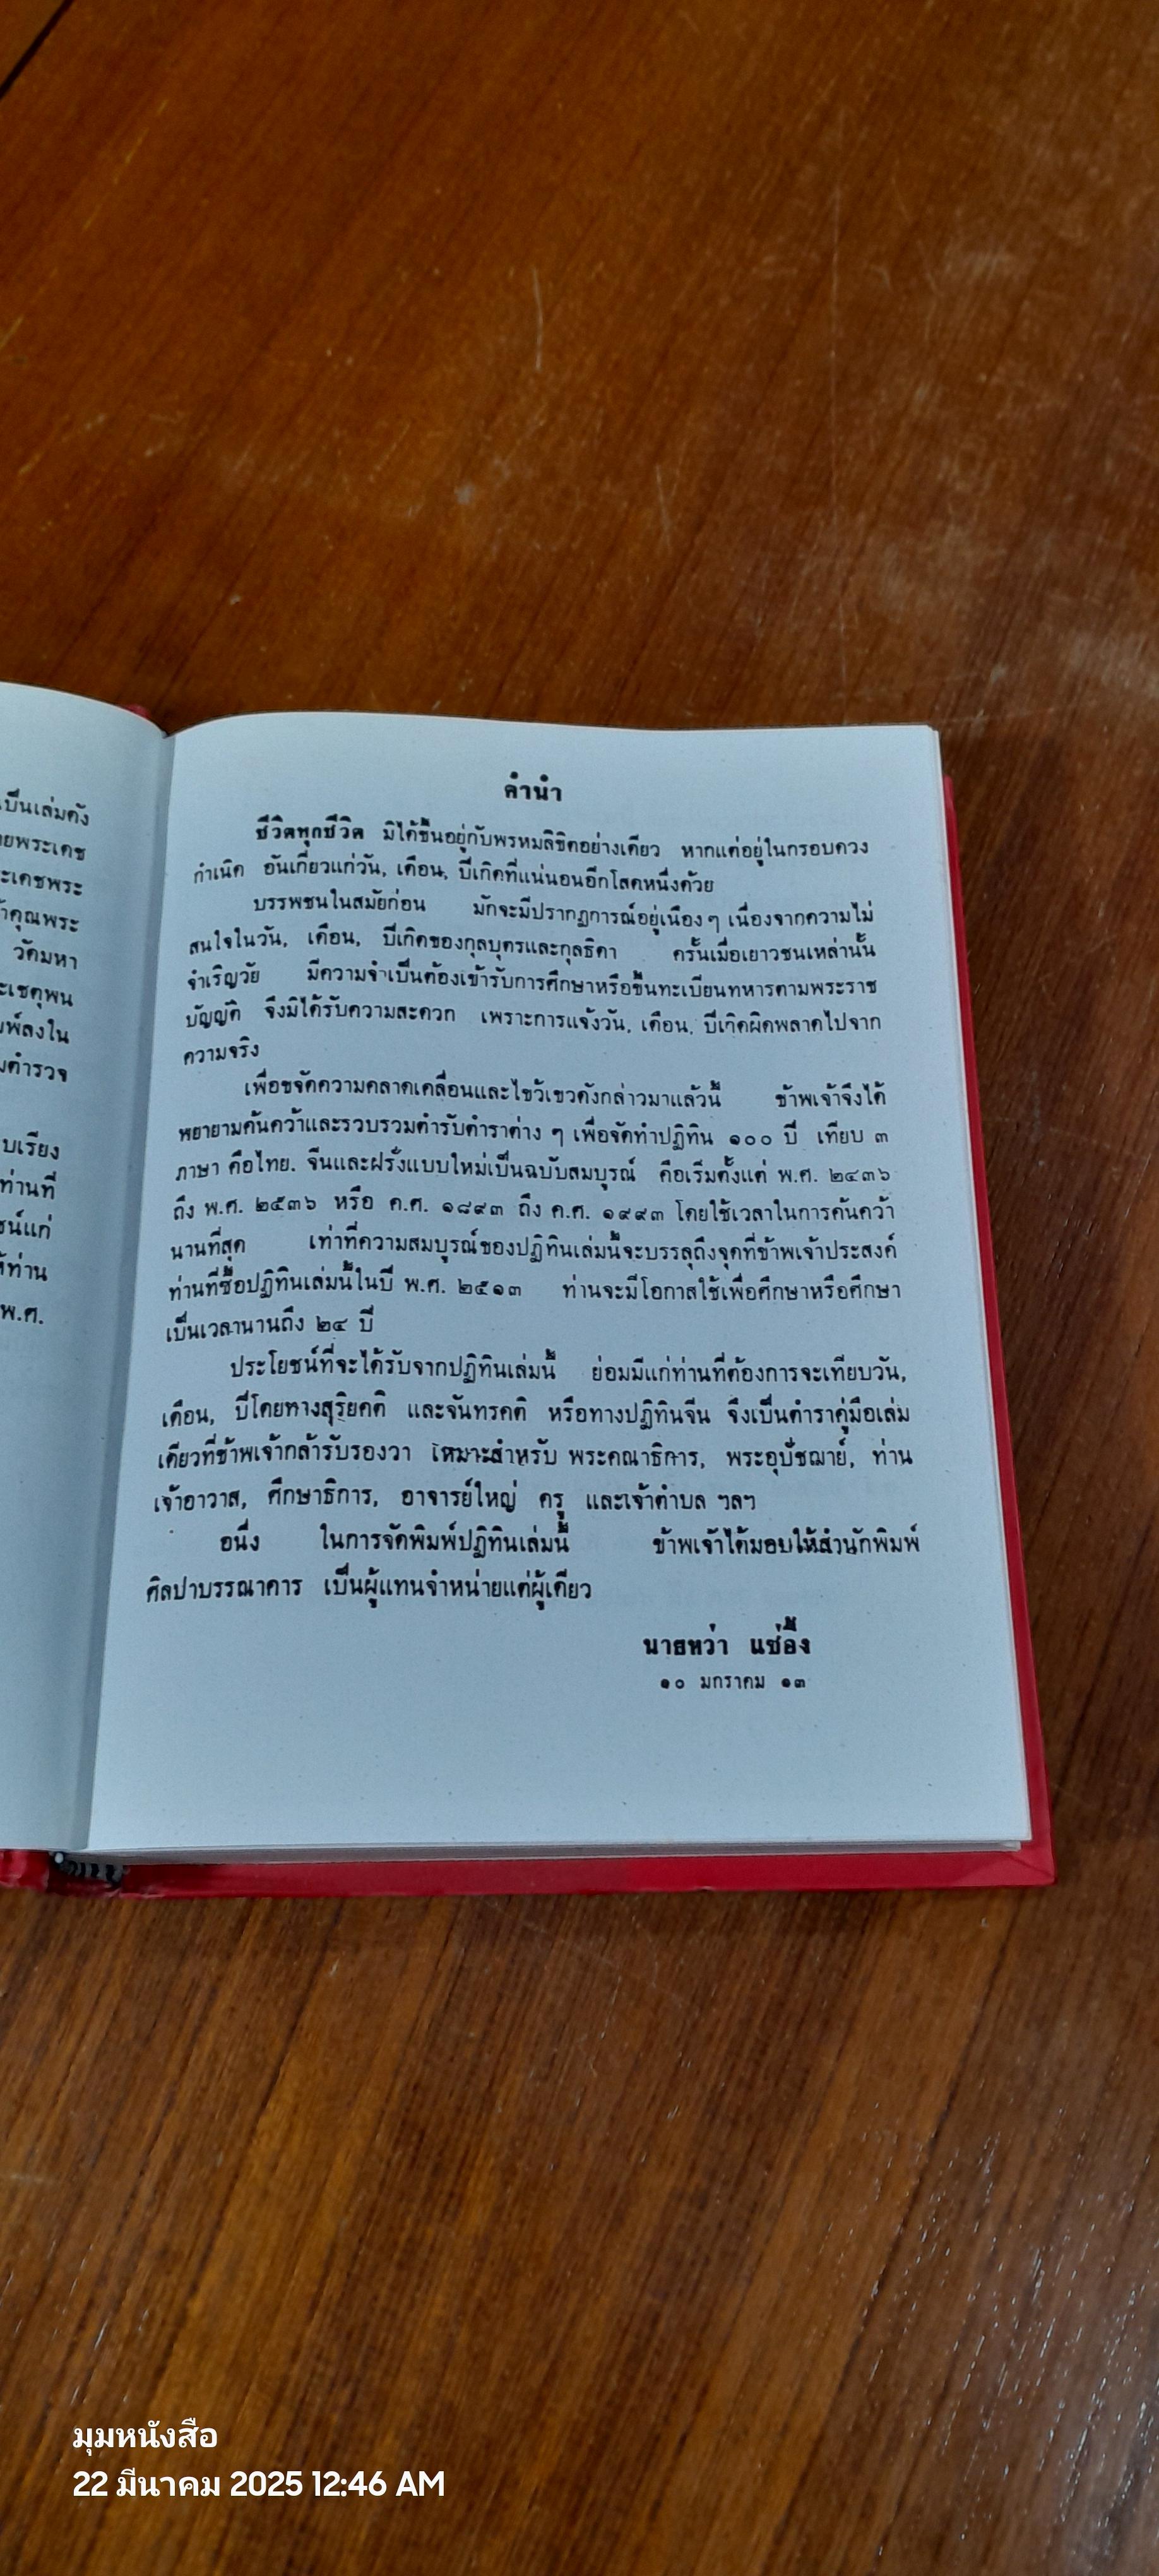 เป็นเล่มดัง
ยพระเดช
ะเดชพระ
าคุณพระ
วัดมหา
ะเชตุพน
มพ์ลงใน
มตำรวจ
บเรียง
ท่านที่
ชน์แก่
ห้ท่าน
พ.ศ.
คำนำ
ชีวิตทุกชีวิต มิได้ขึ้นอยู่กับพรหมลิขิตอย่างเดียว หากแต่อยู่ในกรอบดวง
กำเนิด อันเกี่ยวแก่วัน, เดือน, ปีเกิดที่แน่นอนอีกโสดหนึ่งด้วย
บรรพชนในสมัยก่อน มักจะมีปรากฏการณ์อยู่เนือง ๆ เนื่องจากความไม่
สนใจในวัน, เดือน, ปีเกิดของกุลบุตรและกุลธิดา ครั้นเมื่อเยาวชนเหล่านั้น
จำเริญวัย มีความจำเป็นต้องเข้ารับการศึกษาหรือขึ้นทะเบียนทหารตามพระราช
บัญญัติ จึงมิได้รับความสะดวก เพราะการแจ้งวัน, เดือน, ปีเกิดผิดพลาดไปจาก
ความจริง
เพื่อขจัดความคลาดเคลื่อนและไขว้เขวดังกล่าวมาแล้วนี้ ข้าพเจ้าจึงได้
พยายามค้นคว้าและรวบรวมตำรับตำราต่าง ๆ เพื่อจัดทำปฏิทิน ๑๐๐ ปี เทียบ ๓
ภาษา คือไทย. จีนและฝรั่งแบบใหม่เป็นฉบับสมบูรณ์ คือเริ่มตั้งแต่ พ.ศ. ๒๔๓๖
ถึง พ.ศ. ๒๕๓๖ หรือ ค.ศ. ๑๘๙๓ ถึง ค.ศ. ๑๙๙๓ โดยใช้เวลาในการค้นคว้า
นานที่สุด เท่าที่ความสมบูรณ์ของปฏิทินเล่มนี้จะบรรลุถึงจุดที่ข้าพเจ้าประสงค์
ท่านที่ซื้อปฏิทินเล่มนี้ในปี พ.ศ. ๒๕๑๓ ท่านจะมีโอกาสใช้เพื่อศึกษาหรือศึกษา
เป็นเวลานานถึง ๒๔ ปี
ประโยชน์ที่จะได้รับจากปฏิทินเล่มนี้ ย่อมมีแก่ท่านที่ต้องการจะเทียบวัน,
เดือน, ปีโดยทางสุริยคติ และจันทรคติ หรือทางปฏิทินจีน จึงเป็นตำราคู่มือเล่ม
เดียวที่ข้าพเจ้ากล้ารับรองวา เหมาะสำหรับ พระคณาธิการ, พระอุปัชฌาย์, ท่าน
เจ้าอาวาส, ศึกษาธิการ, อาจารย์ใหญ่ ครู และเจ้าตำบล ฯลฯ
อนึ่ง ในการจัดพิมพ์ปฏิทินเล่มนี้ ข้าพเจ้าได้มอบให้สำนักพิมพ์
ศิลปาบรรณาคาร เป็นผู้แทนจำหน่ายแต่ผู้เดียว
นายหว่า แซ่อึ้ง
๑๐ มกราคม ๑๓
มุมหนังสือ
22 มีนาคม 2025 12:46 AM